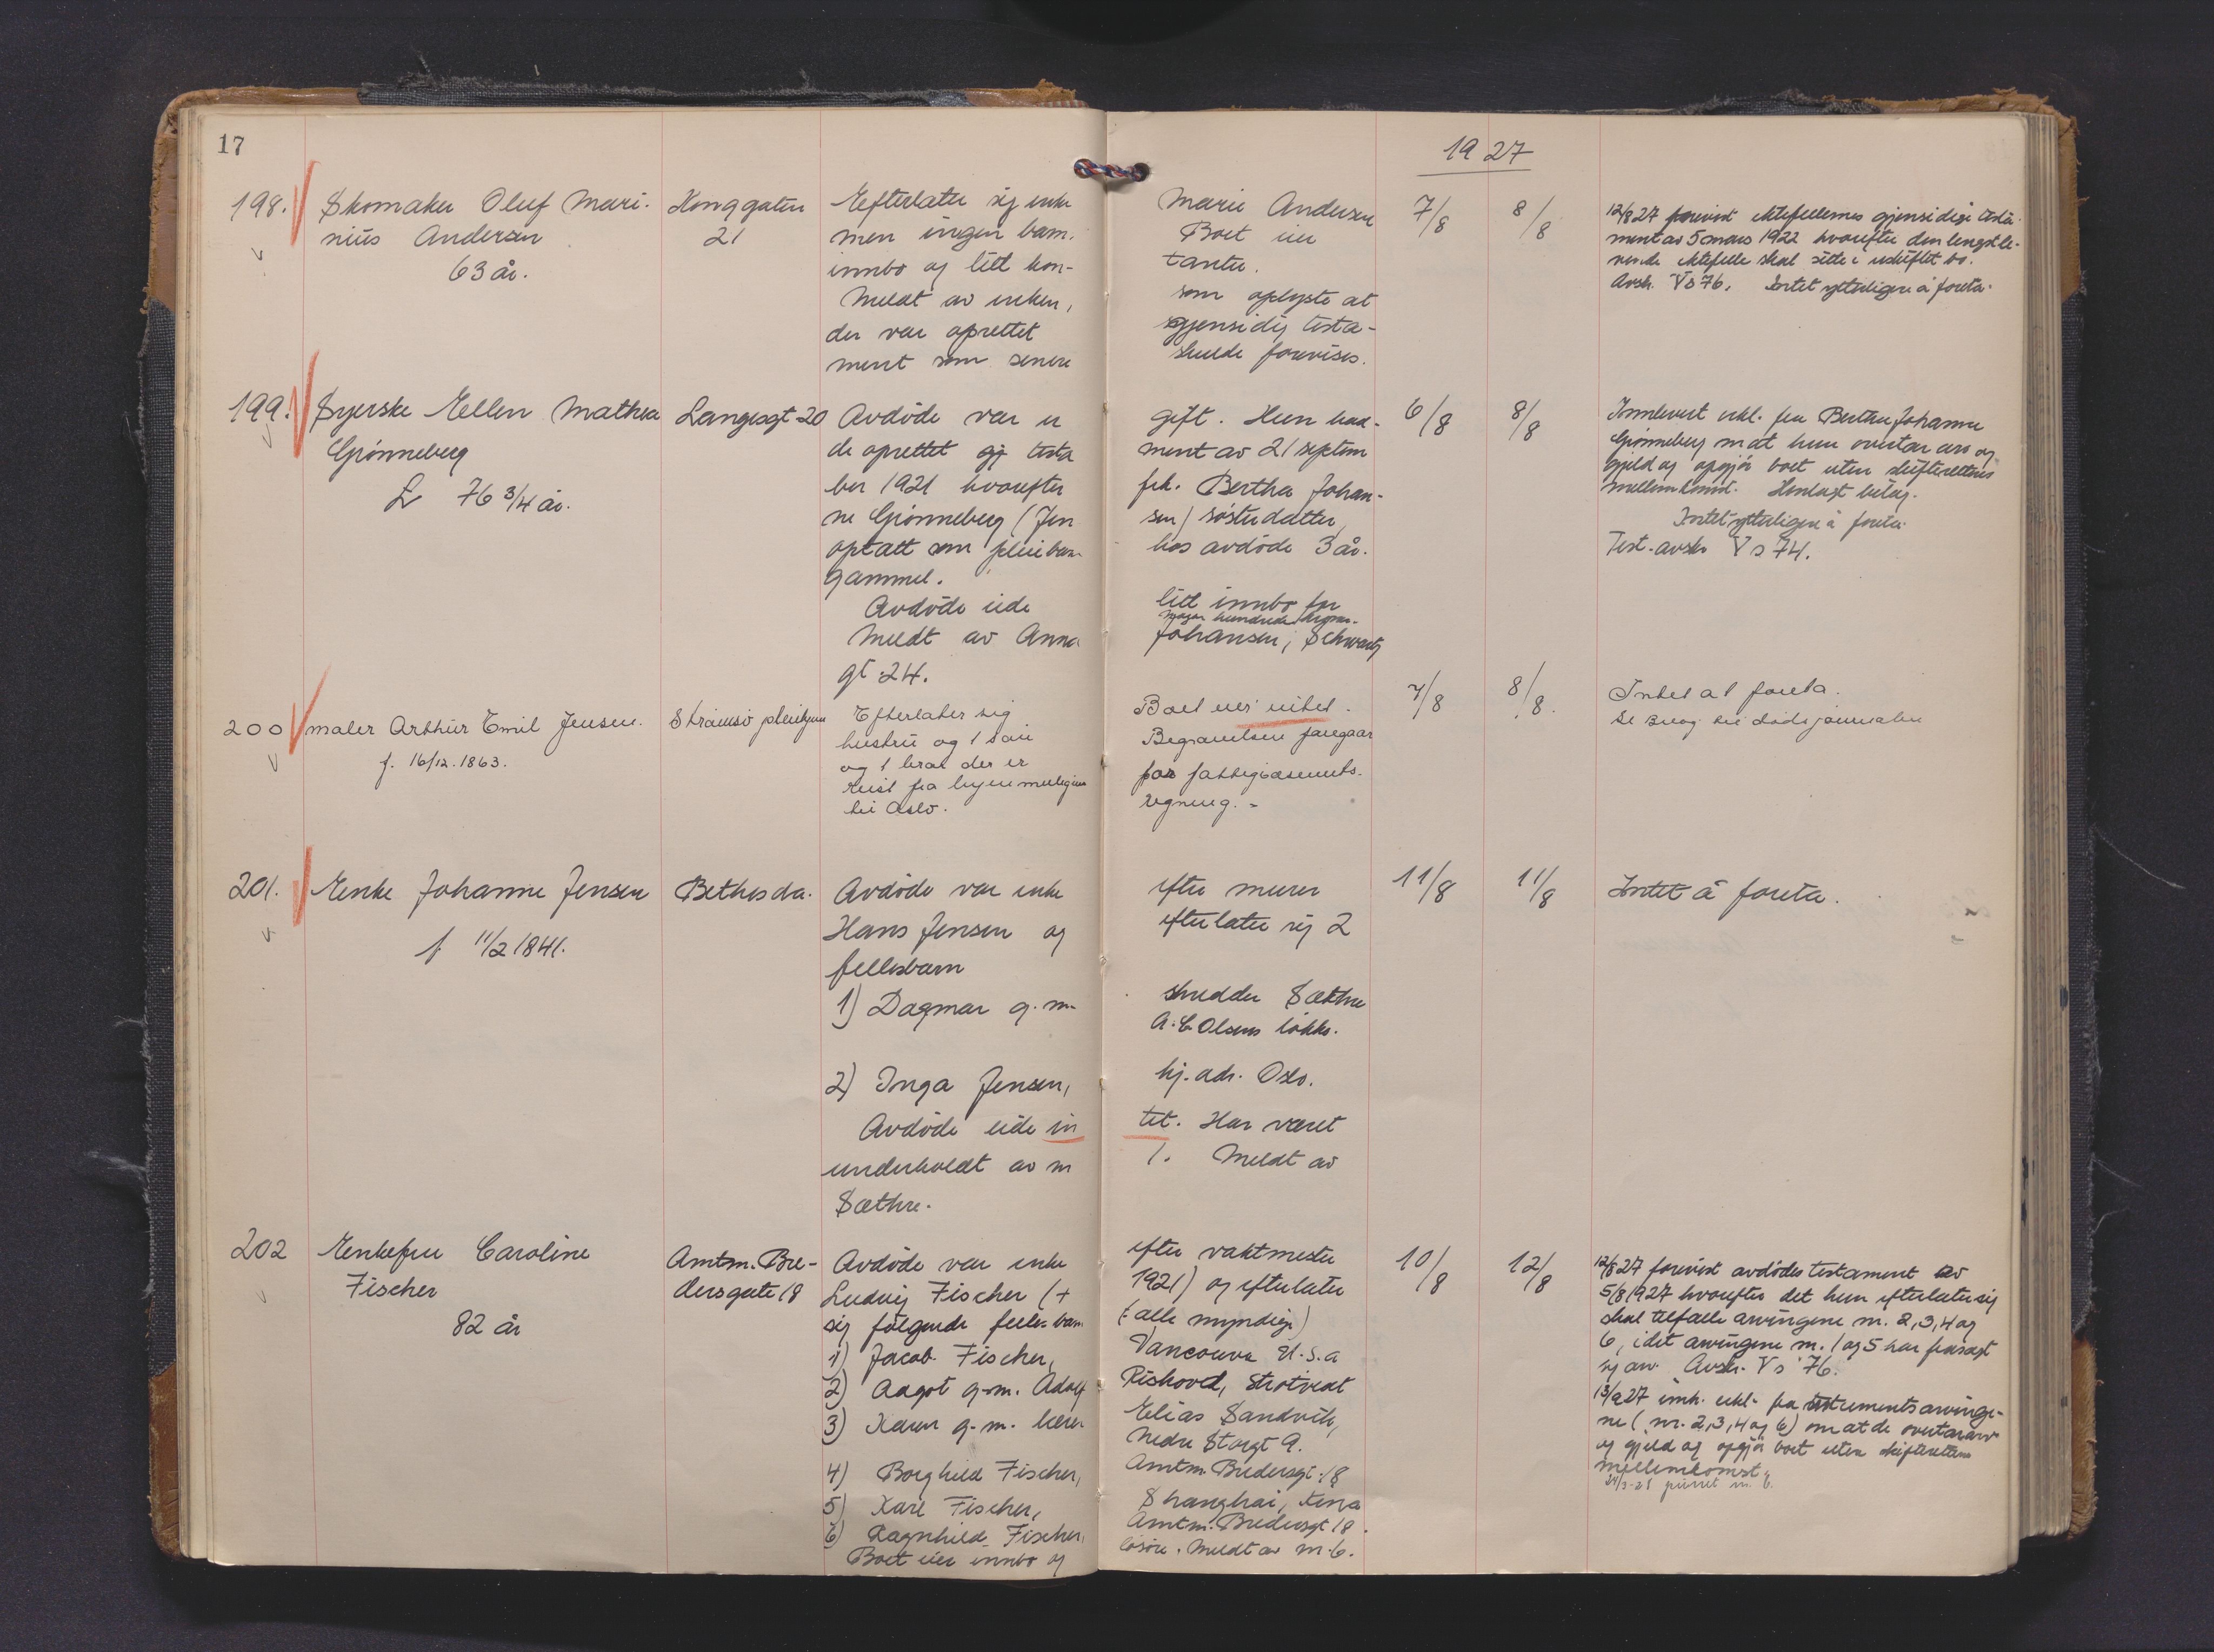 17
1927
198. Skomaker Oluf Mari-
nius Andersen
63 år.
Konggaten
21
Efterlater sig enke Marie Andersen
men ingen barn. Boet eier
innbo og litt kon- tanter.
Meldt av enken, som oplyste at
der var oprettet gjensidig testa-
ment som senere skulde forevises.
7/8
8/8
12/8 27 forevist ektefellernes gjensidige testa-
ment av 5 mars 1922 hvorefter den lengstle-
vende ektefelle skal sitte i uskiftet bo.
Avsk. V s 76. Intet ytterligere å foreta.
199. Syerske Ellen Mathea
Grönneberg
76 3/4 år.
Langesgt 20
Avdöde var u gift. Hun had-
de oprettet testa ment av 21 septem
ber 1921 hvorefter frk. Bertha Johan-
ne Grönneberg (Jen sen) sösterdatter,
optatt som pleiebarn hos avdöde 3 år.
gammel.
Avdöde eide litt innbo for
nogen hundrede kroner.
Meldt av Anna Johansen, Schwartz
gt 24.
6/8
8/8
Innlevert erkl. fra Bertha Johanne
Grönneberg om at hun overtar arv og
gjeld og opgjör boet uten skifterettens
mellemkomst. Henlagt bilag.
Intet ytterligere å foreta.
Test. avskr V s 74.
200 maler Arthur Emil Jensen.
f. 16/12. 1863.
Strömsö pleiehjem
Efterlater sig Boet eier intet.
hustru og 1 sön Begravelsen foregaar
og 1 der er paa fattigvæsenets
reist fra byen muligens regning. -
til Oslo.
7/8
8/8.
Intet at foreta.
Se bilag til dødsjournalen
201. Enke Johanne Jensen
f. 11/2 1841.
Bethesda.
Avdöde var enke efter murer
Hans Jensen og efterlater sig 2
fellesbarn
1) Dagmar g. m. skredder Sæthre
A. C. Olsens lökke.
2) Inga Jensen, hj. adr. Oslo.
Avdöde eide in tet. Har været
underholdt av nr 1. Meldt av
Sæthre.
11/8
11/8
Intet å foreta.
202 Enkefru Caroline
Fischer
82 år
Amtm. Bre-
dersgate 18
Avdöde var enke efter vaktmester
Ludvig Fischer (+ 1921) og efterlater
sig fölgende felles barn (alle myndige)
1) Jacob Fischer, Vancouver U.S.a
2) Aagot g. m. Adolf Rishovd, Strötvedt
3) Karen g. m. lærer Elias Sandvik,
Nedre Storgt 9.
4) Borghild Fischer, Amtm. Bredersgt. 18
5) Karl Fischer, Shanghai, Kina
6) Ragnhild Fischer, Amtm. Bredersgt 18.
Boet eier innbo og lösöre. Meldt av nr. 6.
10/8
12/8
12/8 27 forevist avdödes testament av
5/8 1927 hvorefter det hun efterlater sig
skal tilfalle arvingene nr. 2, 3, 4 og
6, idet arvingene nr. 1 og 5 har frasagt
sig arv. Avskr. V s 76.
13/9 27 innk. erkl. fra testamentsarvinge-
ne (nr. 2, 3, 4 og 6) om at de overtar arv
og gjeld og opgjör boet uten skifterettens
mellemkomst.
purret nr. 6.